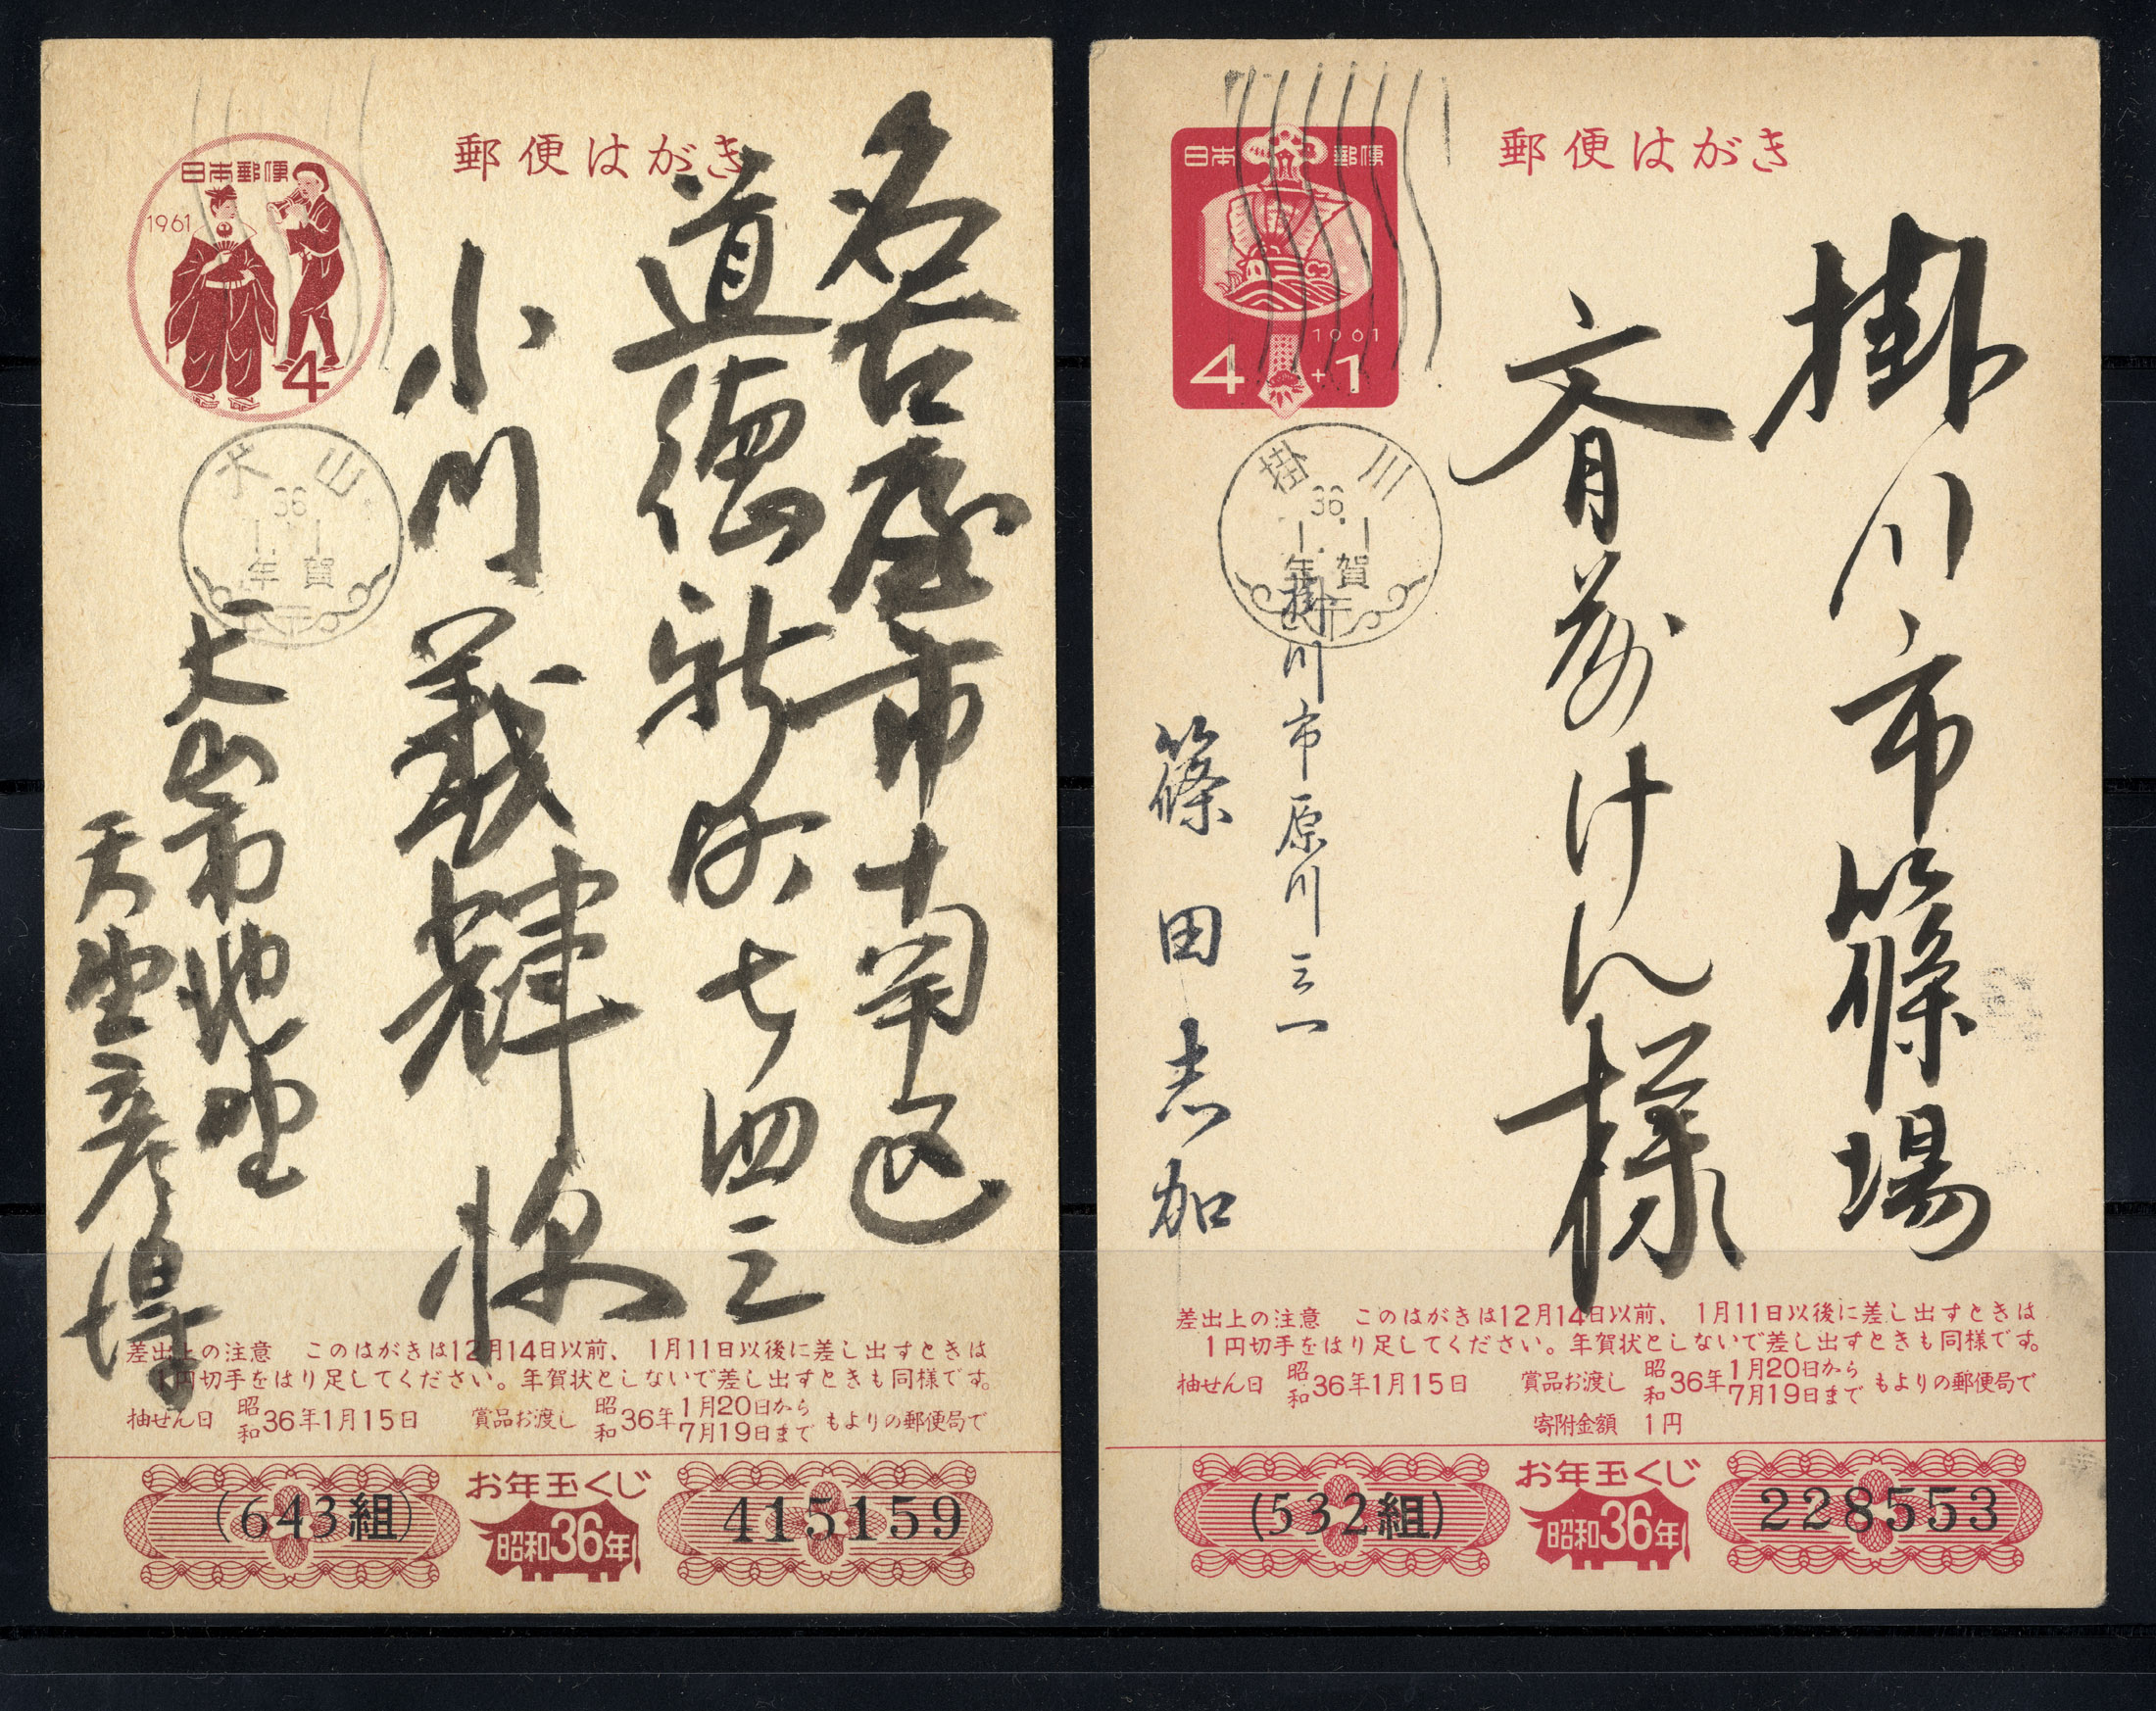 郵便はがき
日本郵便
1961
4
名古屋市南区
道徳新町七ノ四三
小川義輝様
犬山
36
1.1
年賀
犬山市池野
天野彦
差出上の注意 このはがきは12月14日以前、1月11日以後に差し出すときは
1円切手をはり足してください。年賀状としないで差し出すときも同様です。
抽せん日 昭和36年1月15日 賞品お渡し 昭和36年1月20日から7月19日まで もよりの郵便局で
(643組)
お年玉くじ
昭和36年
415159
郵便はがき
日本郵便
1961
4+1
掛川市篠場
斉藤けん様
掛川
36
1.1
年賀
掛川市原川三一
篠田志加
差出上の注意 このはがきは12月14日以前、1月11日以後に差し出すときは
1円切手をはり足してください。年賀状としないで差し出すときも同様です。
抽せん日 昭和36年1月15日 賞品お渡し 昭和36年1月20日から7月19日まで もよりの郵便局で
寄附金額 1円
(532組)
お年玉くじ
昭和36年
228553